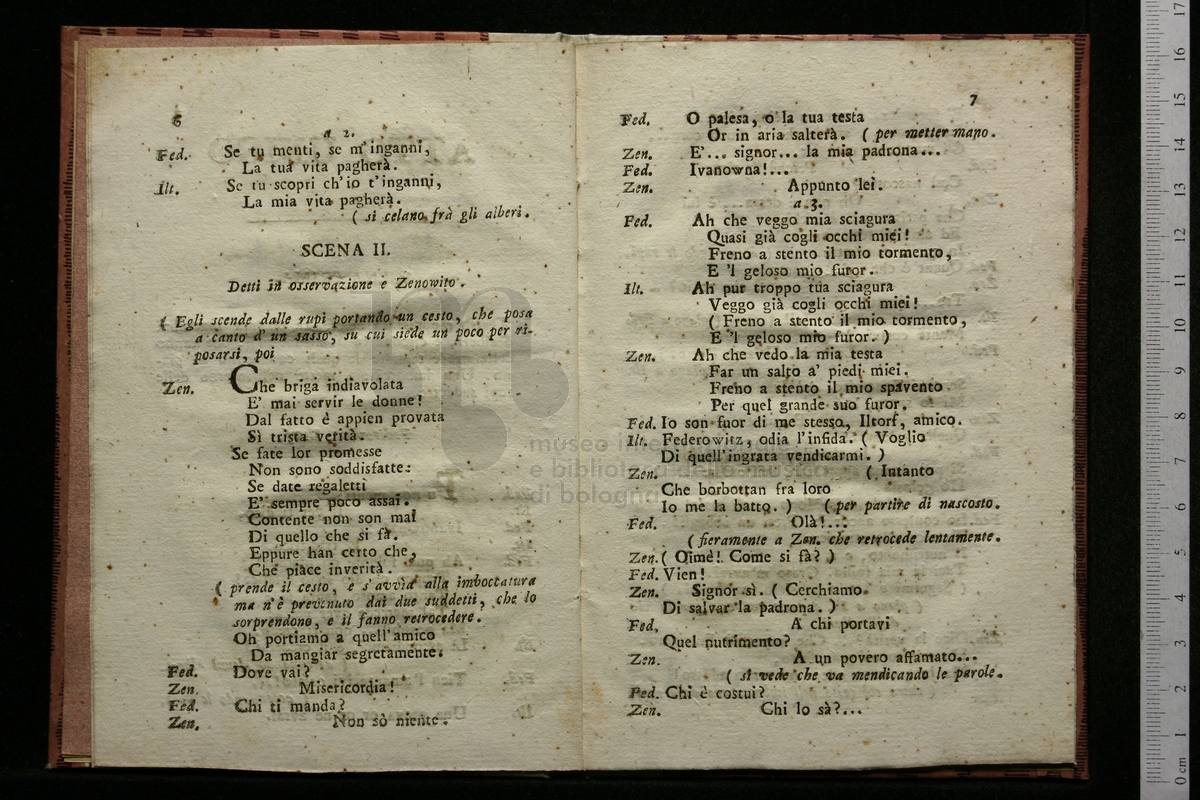 6
a 2.
Fed. Se tu menti, se m'inganni,
La tua vita pagherà.
Ilt. Se tu scopri ch'io t'inganni,
La mia vita pagherà.
( si celano frà gli alberi.
SCENA II.
Detti in osservazione e Zenowito.
( Egli scende dalle rupi portando un cesto, che posa
a canto d'un sasso, su cui siede un poco per ri-
posarsi, poi
Zen. Che briga indiavolata
E' mai servir le donne!
Dal fatto è appien provata
Sì trista verità.
Se fate lor promesse
Non sono soddisfatte:
Se date regaletti
E' sempre poco assai.
Contente non son mai
Di quello che si fà.
Eppure han certo che,
Che piace inverità.
( prende il cesto, e s'avvìa alla imboccatura
ma n'è prevenuto dai due suddetti, che lo
sorprendono, e il fanno retrocedere.
Oh portiamo a quell'amico
Da mangiar segretamente.
Fed. Dove vai?
Zen. Misericordia!
Fed. Chi ti manda?
Zen. Non sò niente.
7
Fed. O palesa, o la tua testa
Or in aria salterà. ( per metter mano.
Zen. E'... signor... la mia padrona...
Fed. Ivanowna!...
Zen. Appunto lei.
a 3.
Fed. Ah che veggo mia sciagura
Quasi già cogli occhi miei!
Freno a stento il mio tormento,
E 'l geloso mio furor.
Ilt. Ah pur troppo tua sciagura
Veggo già cogli occhi miei!
( Freno a stento il mio tormento,
E 'l geloso mio furor. )
Zen. Ah che vedo la mia testa
Far un salto a' piedi miei.
Freno a stento il mio spavento
Per quel grande suo furor.
Fed. Io son fuor di me stesso, Iltorf, amico.
Ilt. Federowitz, odia l'infida. ( Voglio
Di quell'ingrata vendicarmi. )
Zen. ( Intanto
Che borbottan fra loro
Io me la batto. ) ( per partire di nascosto.
Fed. Olà!...
( fieramente a Zen. che retrocede lentamente.
Zen. ( Oimè! Come si fà? )
Fed. Vien!
Zen. Signor sì. ( Cerchiamo
Di salvar la padrona. )
Fed. A chi portavi
Quel nutrimento?
Zen. A un povero affamato...
( si vede che va mendicando le parole.
Fed. Chi è costui?
Zen. Chi lo sà?...